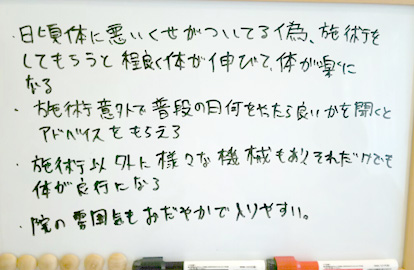 ・日頃体に悪いくせがついてる偽、施術を
してもらうと程良く体が伸びて、体が楽に
なる
・施術意外で普段の日何をやたら良いかを聞くと
アドバイスをもらえる
・施術以外に様々な機械もあり、それだけでも
体が良行になる
・院の雰囲気もおだやかで入りやすい。